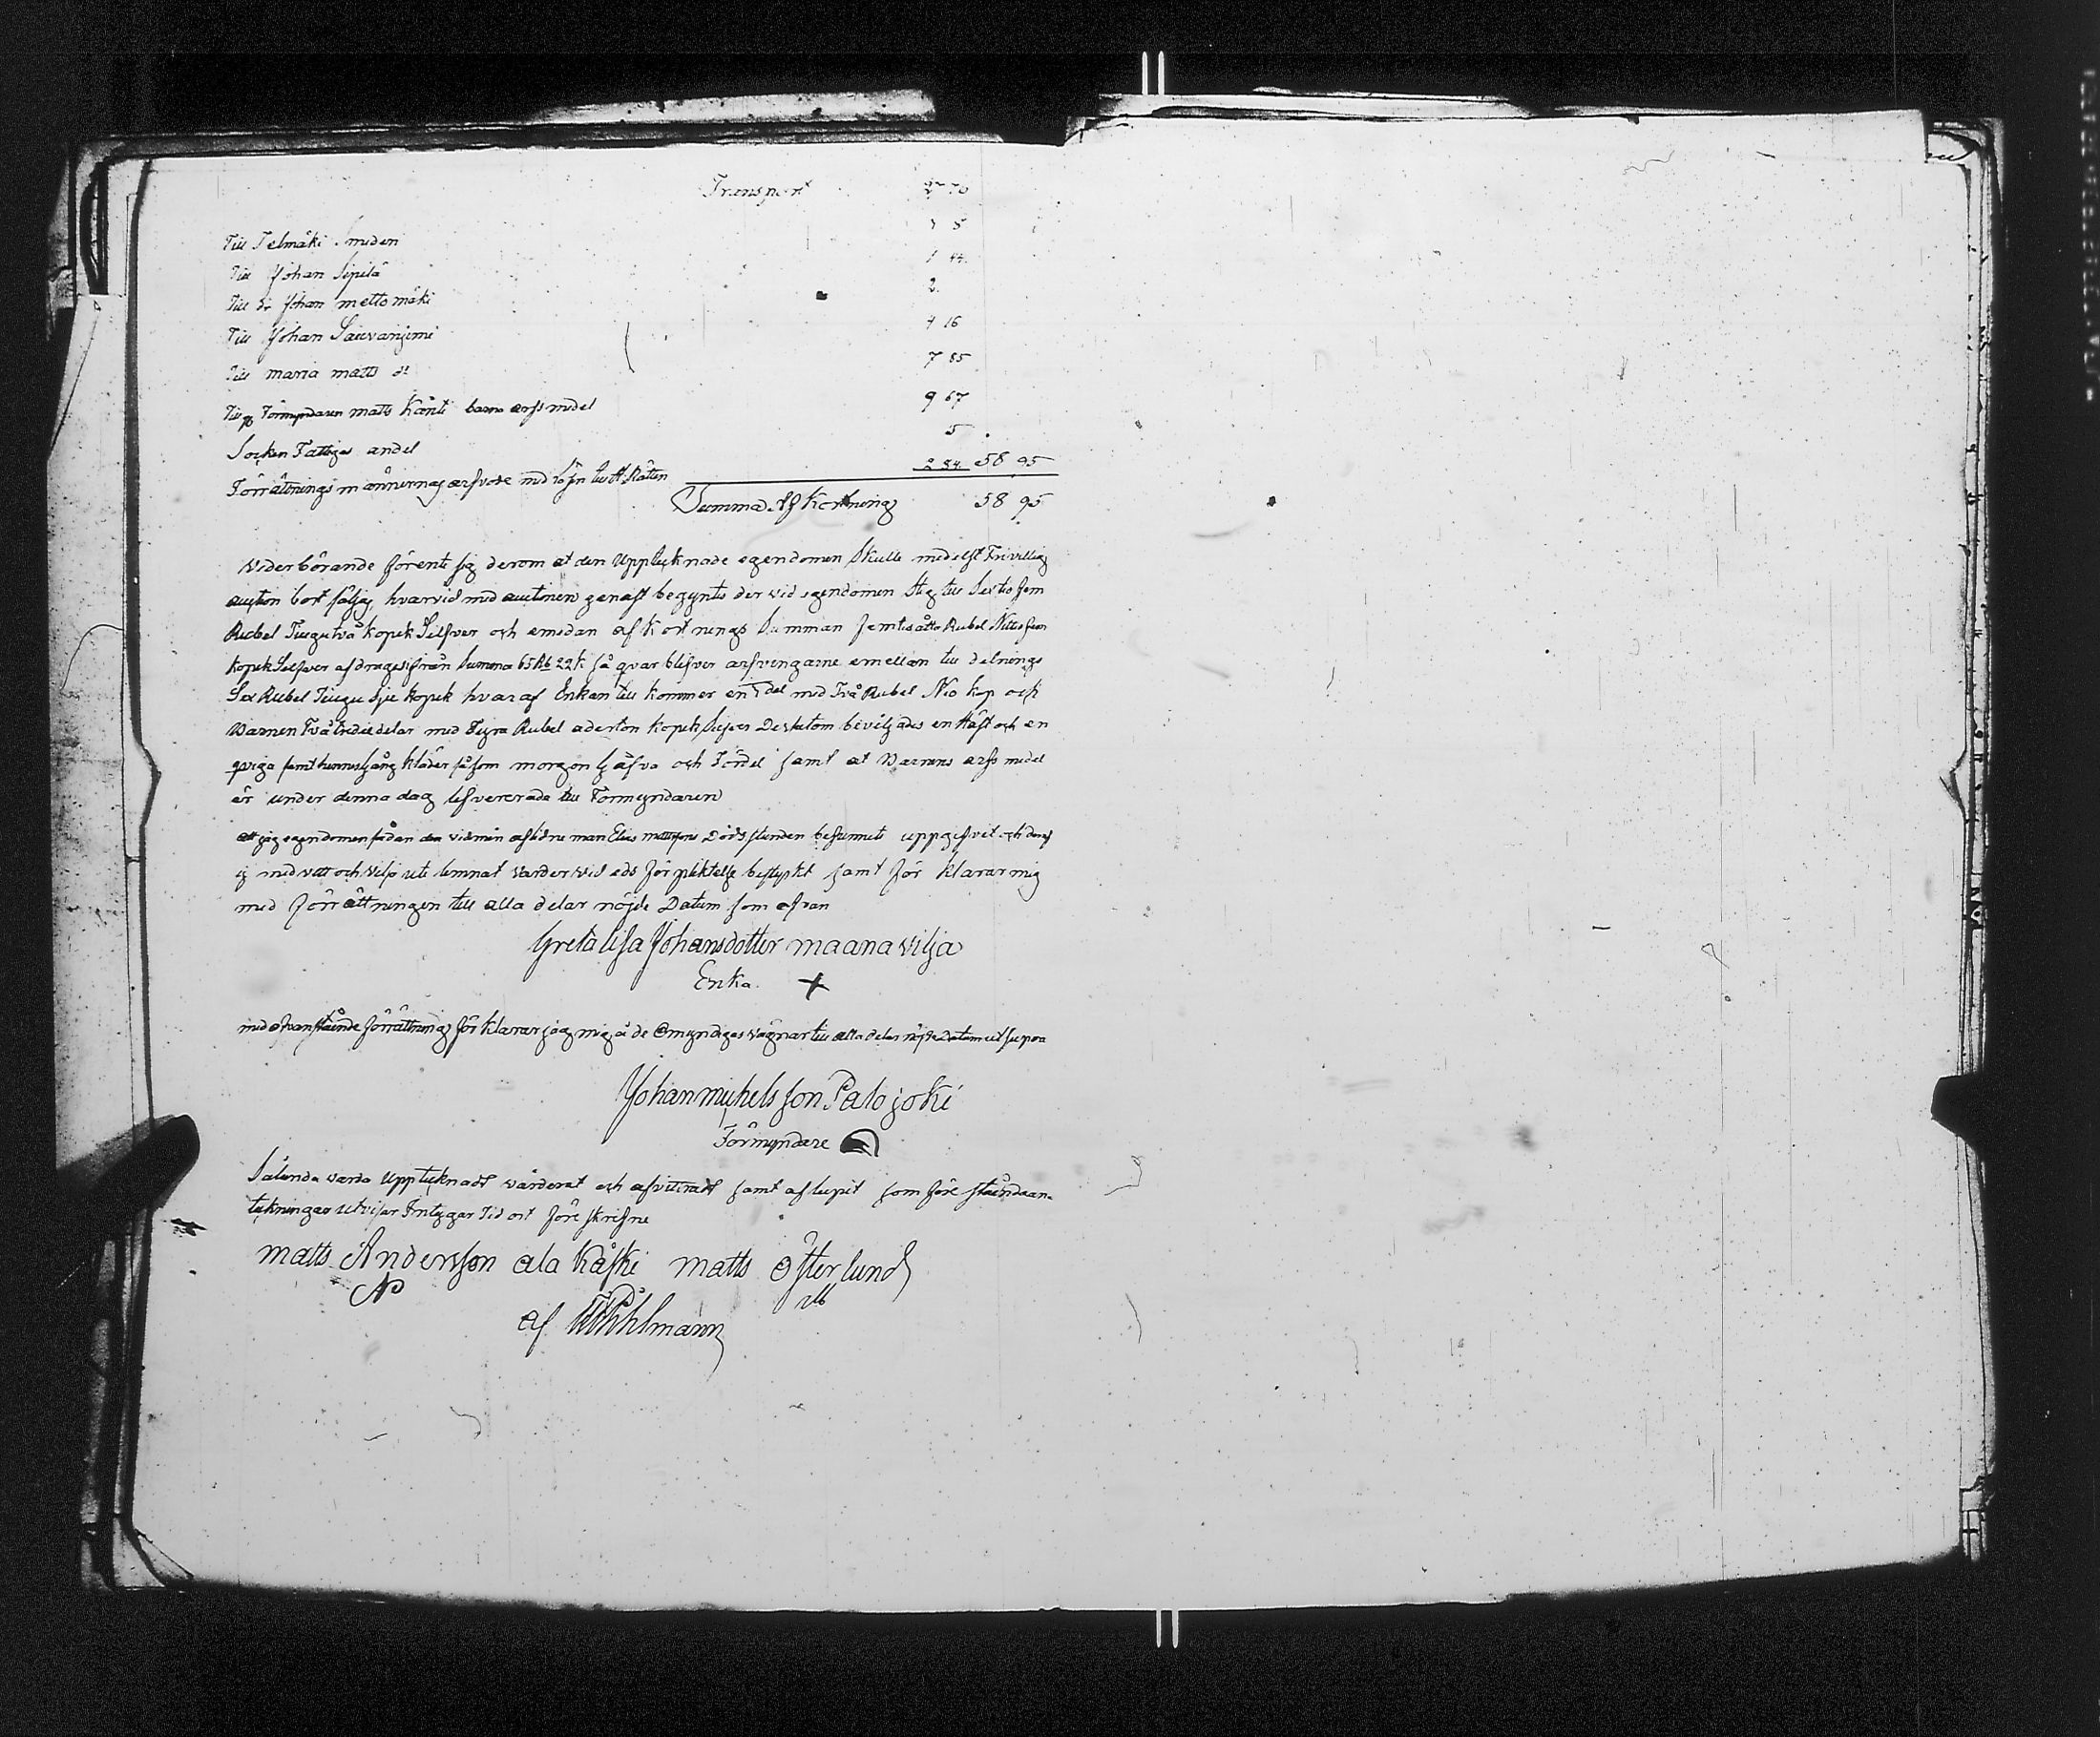 Transport 27 70
Till Jelmäki Smeden 1 5
Till Johan Sipilä 1 44.
Till do Johan mettomäki 2.
Till Johan Saúvaniemi 4 16
Till maria matts dr 7 85
Till Förmyndaren matts Känti barns arfs medel 9 67
Socken Fattigas andel 5.
Förrättnings männernas arfvode med lösn till H. Rätten 2 84. 58 95
Summa Af Kortning 58 95
Widerbörande förente sig derom at den Upptecknade egendomen Skulle medelst Frivillig
auction bort säljas, hvarvid med auctinen genast begyntes der vid egendomen Steg till Sextiofem
Rubel Tiugutvå kopek Silfver och emedan af Kortnings Summan femtioåtta Rubel Nittiofem
kopek Silfver afdrages ifrån Summa 65 Rb 22 k så qvar blifver arfvingarne emellan till delnings
Sex Rubel Tiugu Sju kopek hvaraf Enkan till kommer en ⅓ del med Två Rubel Nio kop och
Barnen Två tredie delar med Fyra Rubel aderton kopek Silfver Desutom beviljades en Häst och en
qviga samt hennes gång kläder såsom morgon gåfva och Fördel samt at Barnens arfs medel
är under denna dag lefvererade till Förmyndaren
att jag egendomen sådan den vid min aflidne man Elias mattssons Dödsstunden befunnits uppgifvet och deraf
ej med vett och vilja ute lemnat varder vid eds förpliktelse bestyrkt samt för klarar mig
med förrättningen till alla delar nöjde Datum som ofvan
Greta lisa Johansdotter maanavilja
Enka. +
med ofvanstående förrättning förklarar jag mig å de Omyndigas vägnar till alla delar nöjd Datum ut supra
Johan michelsson Palojoki
Förmyndare
Sålunda varda Upptecknadt värderat och afvittradt samt aflupit som före stående an-
tekningar utvisar Intygar Tid ort före skrifne
matts Andersson ala käski matts österlund
af Påhlmann